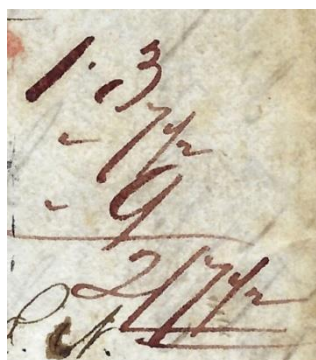 1·3
- 7½
- 9
2/7½